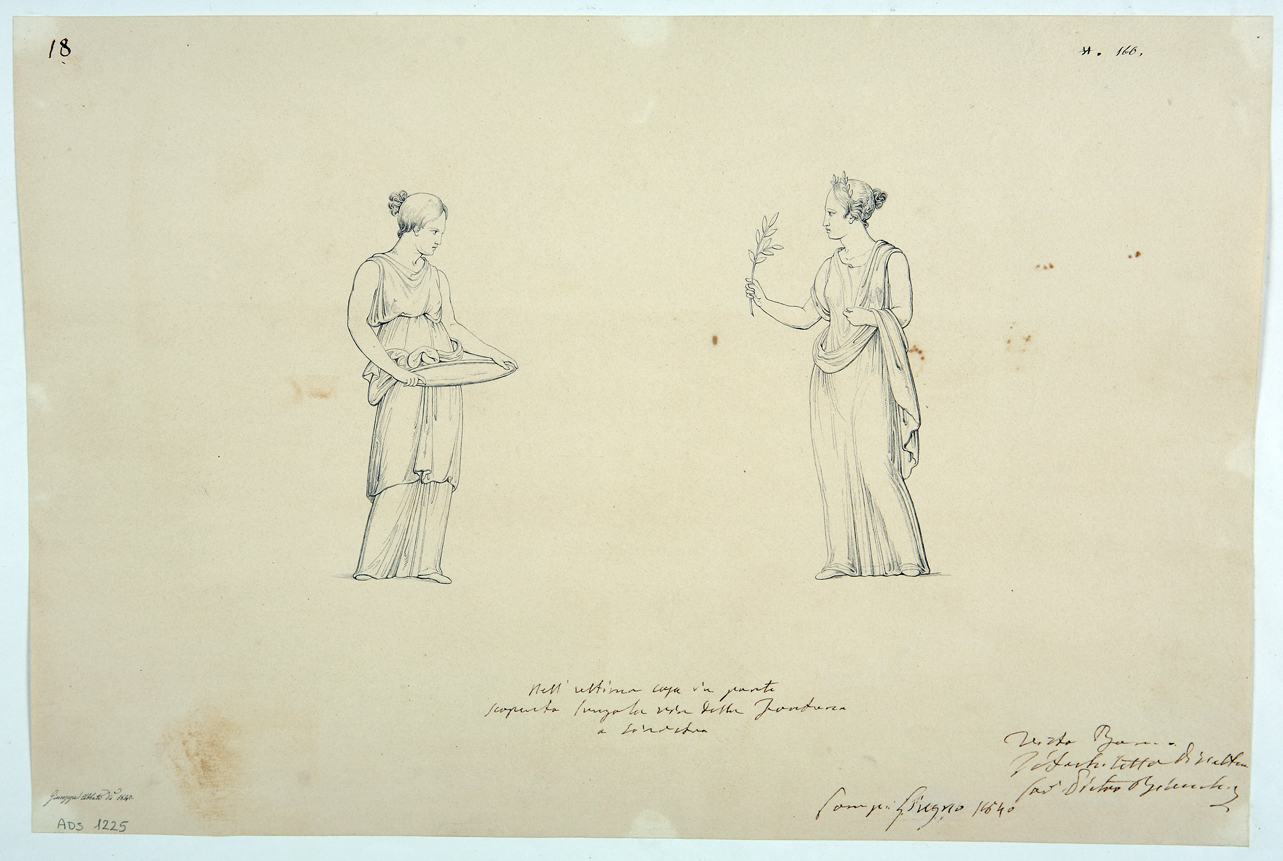 18
A. 166.
Nell' ultima casa in parte
scoperta lungo la via della Fortuna
a sinistra
Visto Buono
L'Architetto Direttore
Cav. Pietro Bianchi
Pompei Giugno 1840
Giuseppe Abbate dis. 1840.
ADS 1225